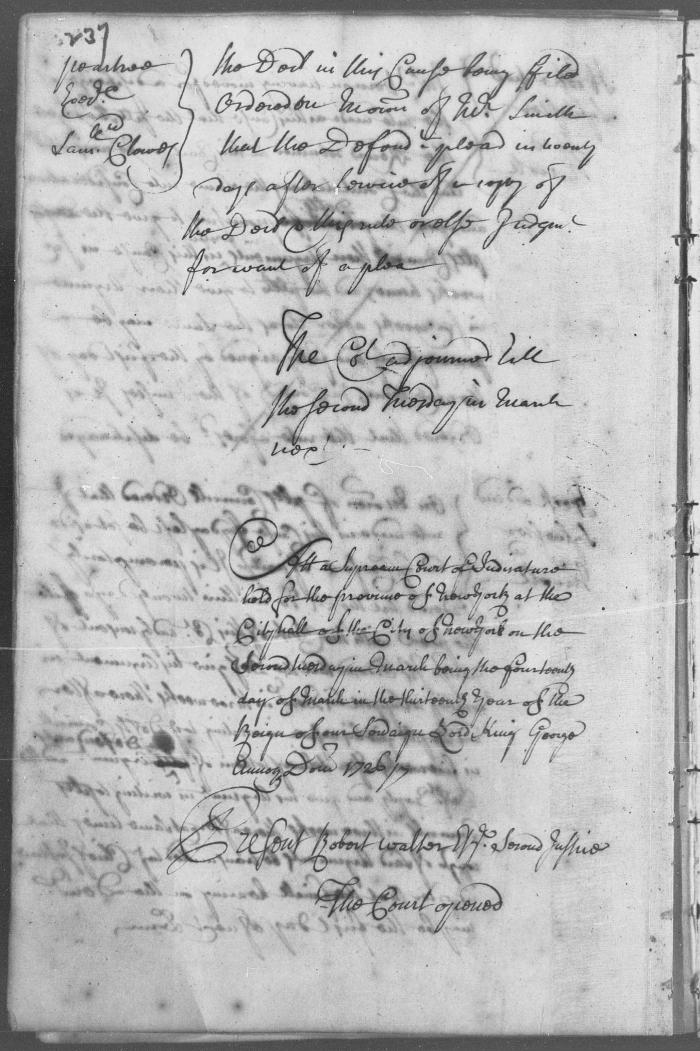 237
peartree
Exec.r
vs
Sam.ll Clowes
the Decl in this Cause being filed
Ordered on Mocon of Mr. Smith
that the Defend.t plead in twenty
days after service of a copy of
the Decl & this rule or else Judgm.t
for want of a plea
The Ct. adjourned till
the second Tuesday in March
next.
Att a Supream Court of Judicature
held for the province of New York at the
City hall of the City of New York on the
Second tuesday in March being the fourteenth
day of March in the thirteenth Year of the
Reign of our Soveraign Lord King George
Annoq Dom 1726/7
Present Robert Walter Esqr. Second Justice
The Court opened